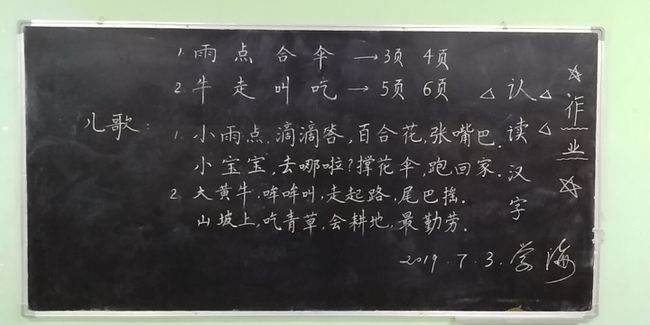 1. 雨 点 合 伞 → 3页 4页
2. 牛 走 叫 吃 → 5页 6页
儿歌：
1. 小雨点，滴滴答，百合花，张嘴巴.
小宝宝，去哪啦？撑花伞，跑回家.
2. 大黄牛，哞哞叫，走起路，尾巴摇.
山坡上，吃青草，会耕地，最勤劳.
△认△读△汉字
☆作业☆
2019.7.3.学海